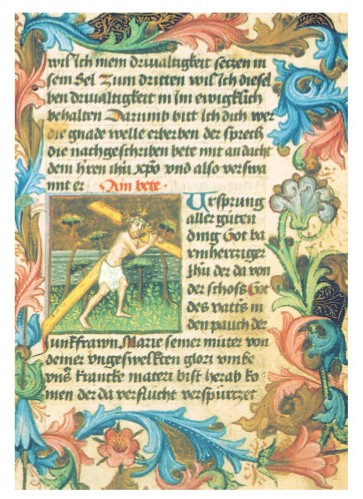 wil ich mein driualtigkeit setzen in
sein Sel Zum dritten wil ich diesel
ben driualtigkeit in im ewigklich
behalten Darumb bitt ich dich wer
die gnade welle erberben der sprech
die nachgeschriben bete mit andacht
dem h'ren ihu xpo vnd also verswa
nnt er Ain bete
Vrsprung
aller guten
ding Got ba
rmhertziger
Jhu der da von
der schoss Got
des vatts in
den pauch der
Junkfrawn Marie seiner muter von
deiner vngeswelkten glori vmbe
vns krancke materi bist herab ko
men der da verflucht verspürtzet